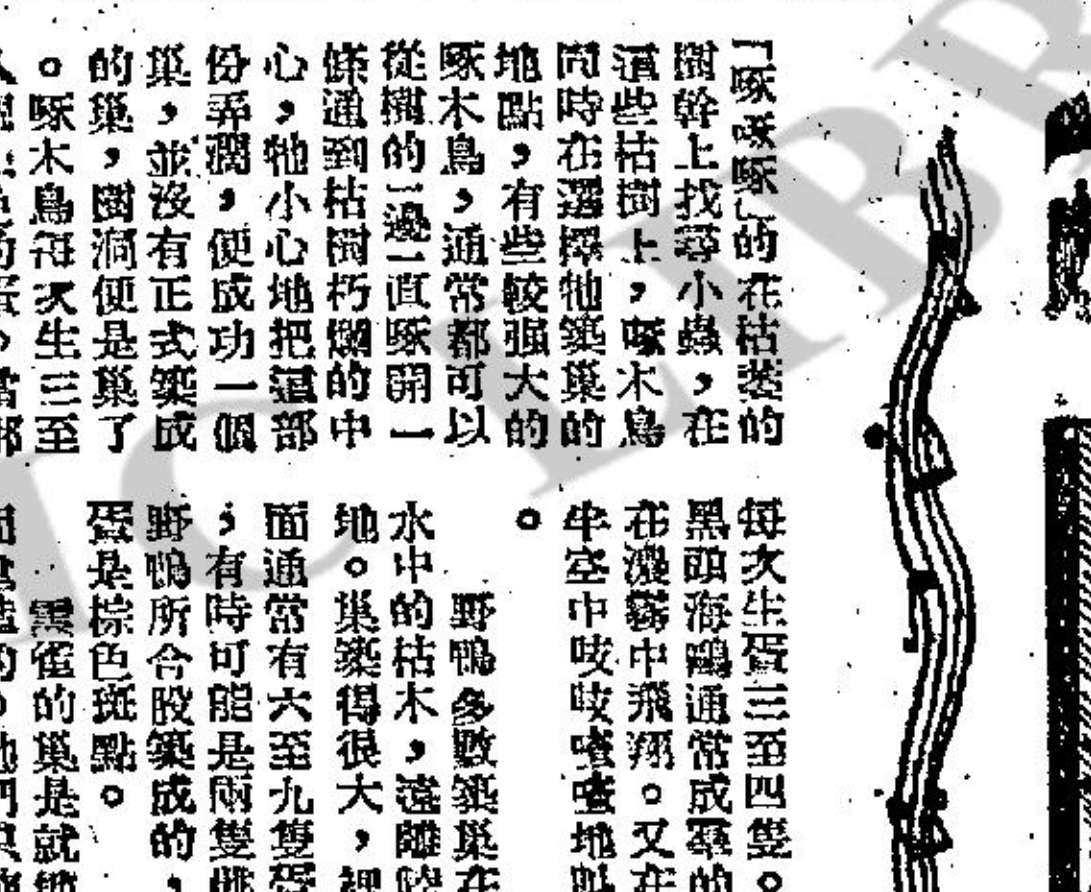 「啄啄啄」的在枯萎的
樹幹上找尋小蟲,在
這些枯樹上,啄木鳥
同時在選擇牠築巢的
地點,有些較强大的
啄木鳥,通常都可以
從樹的一邊一直啄開一
條通到枯樹朽爛的中
心,牠小心地把這部
份弄濶,便成功一個
巢,並沒有正式築成
的巢,樹洞便是巢了
。啄木鳥每次生三至
每次生蛋三至四隻。
黑頭海鷗通常成羣的
在濃霧中飛翔。又在
半空中吱吱喳喳地
。
野鴨多數築巢在
水中的枯木,遠離
地。巢築得很大,裡
面通常有六至九隻蛋
;有時可能是兩隻
野鴨所合股築成的,
蛋是棕色斑點。
的巢是就